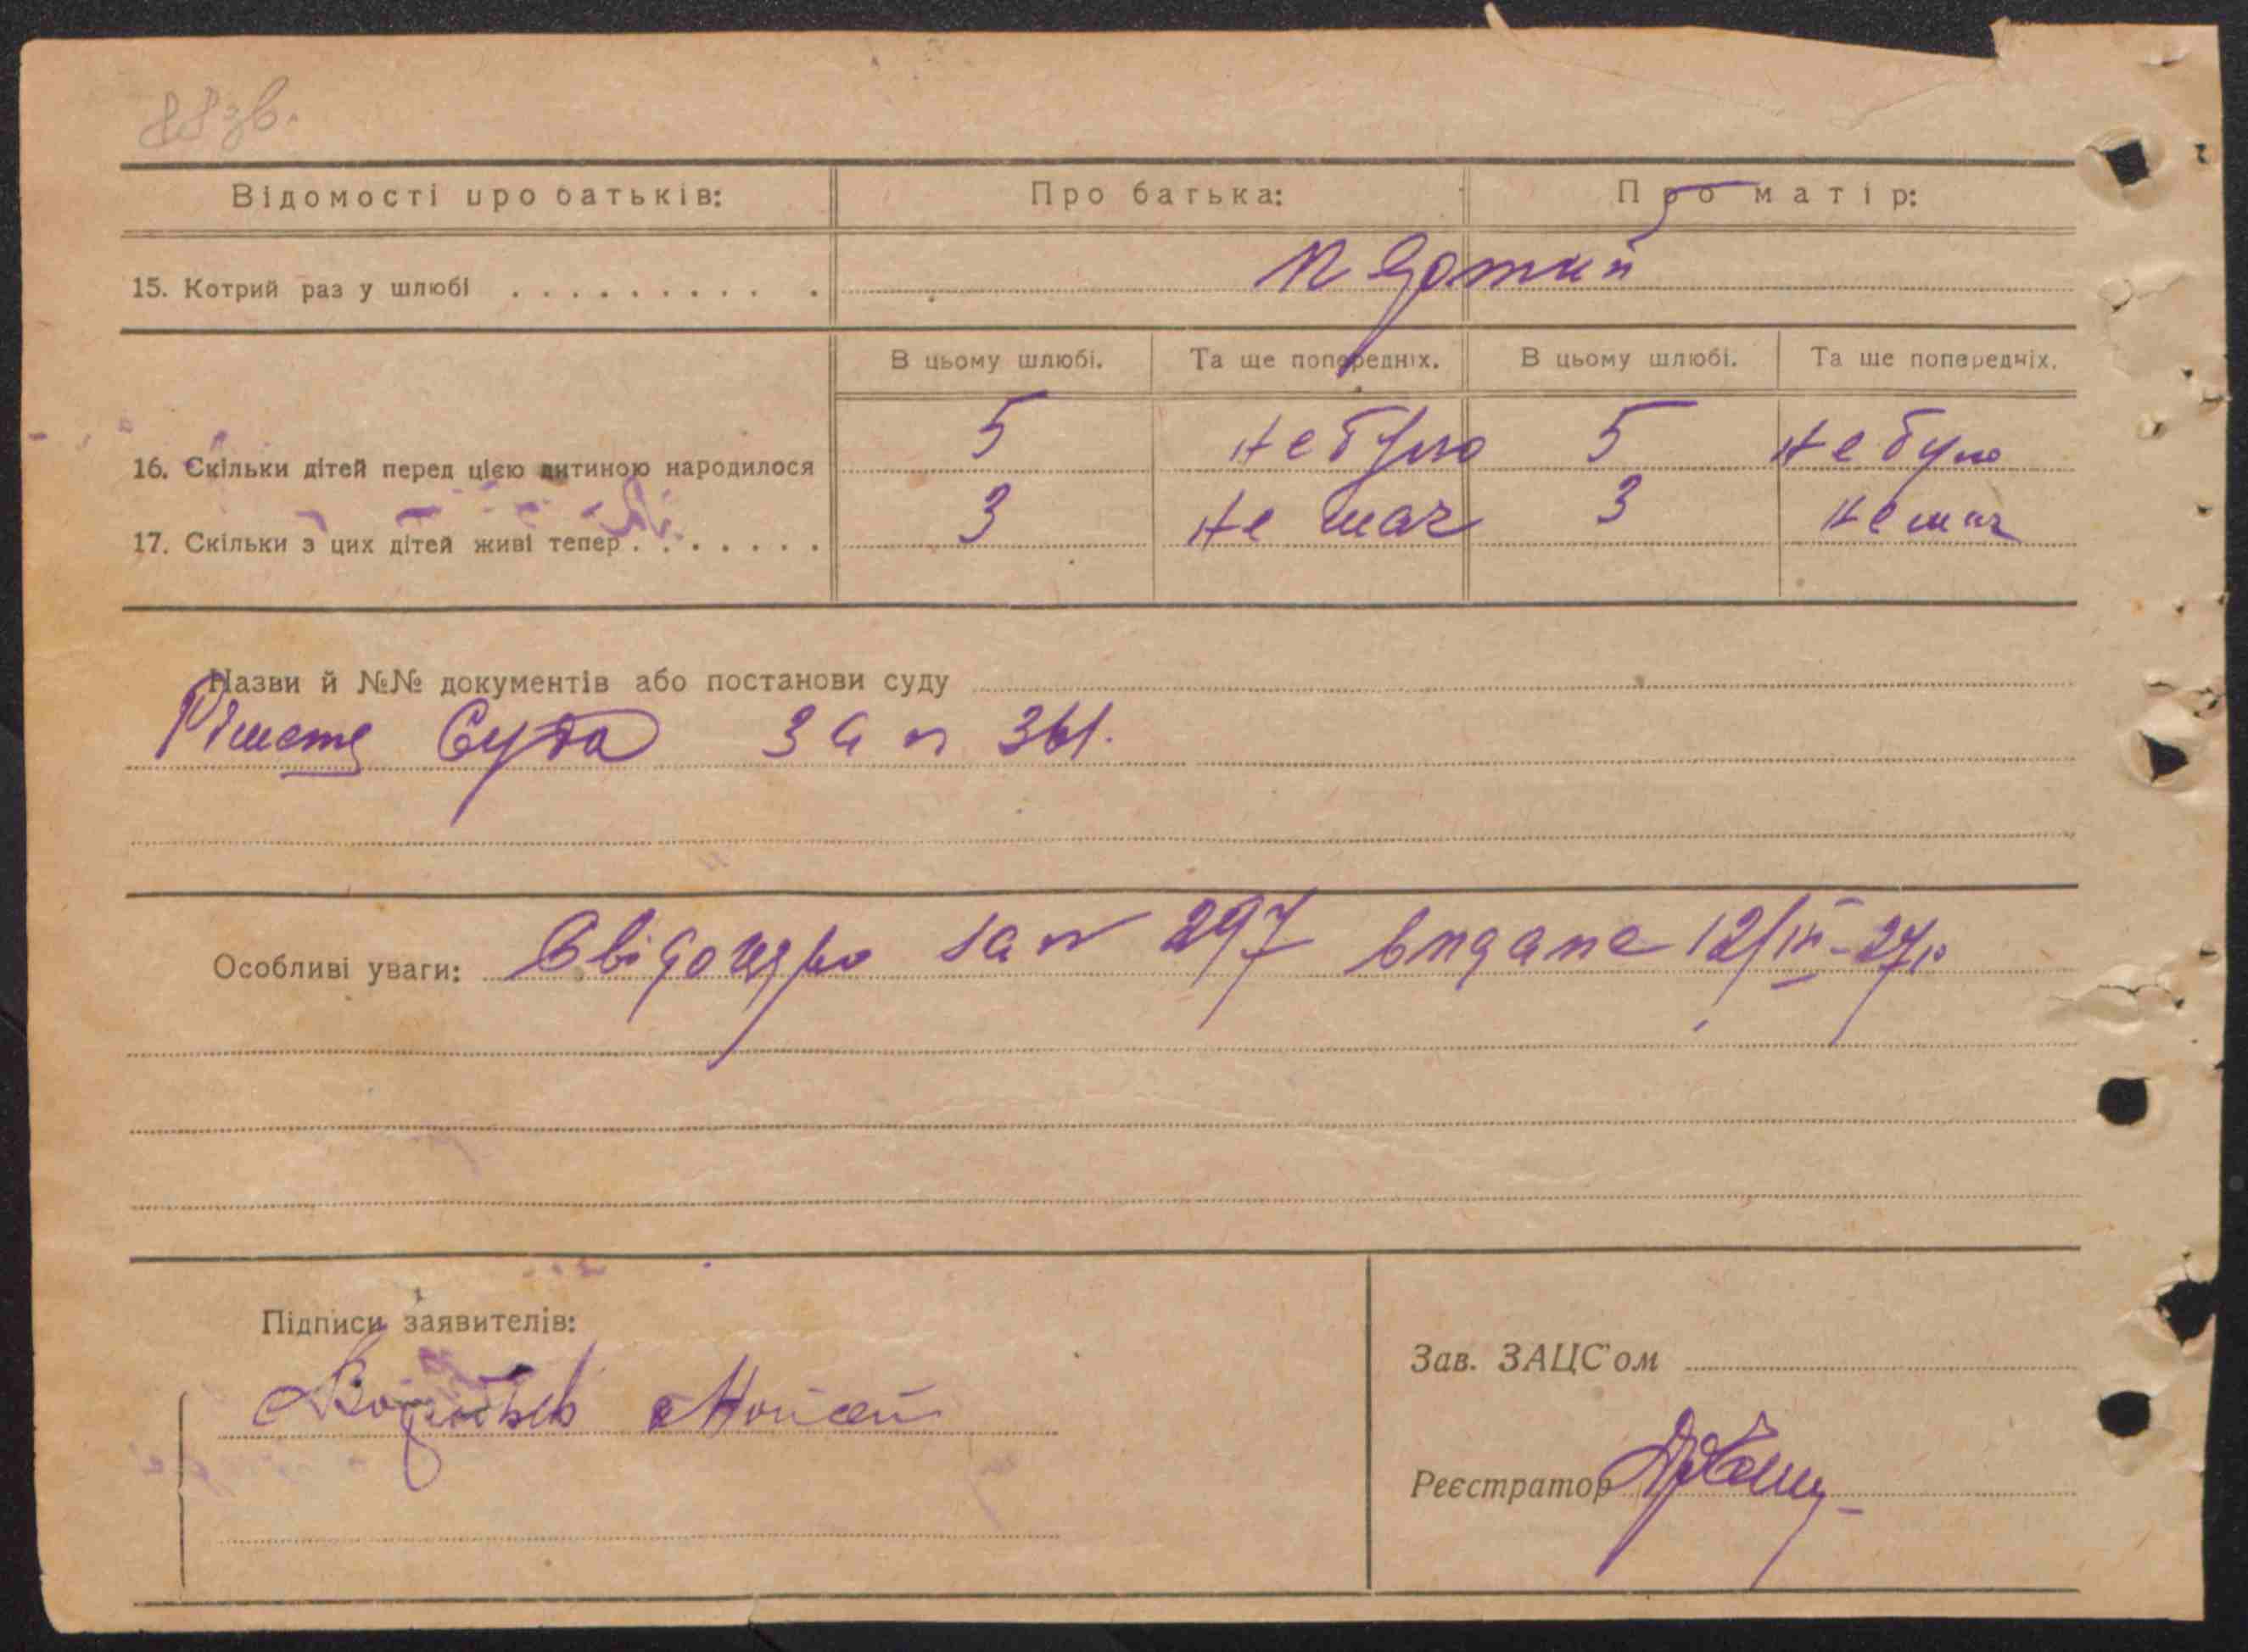 88 зв.
Відомості про батьків: Про батька: Про матір:
15. Котрий раз у шлюбі . . . . . . . . . .
В цьому шлюбі. Та ще попередніх. В цьому шлюбі. Та ще попередніх.
16. Скільки дітей перед цією дитиною народилося 5 не було 5 не було
17. Скільки з цих дітей живі тепер . . . . . . . 3 не має 3 не має
Назви й №№ документів або постанови суду
Суда за № 361.
Особливі уваги: за № 297 видане 12/IV-27р
Підписи заявителів:
Мойсей
Зав. ЗАЦС'ом
Реєстратор